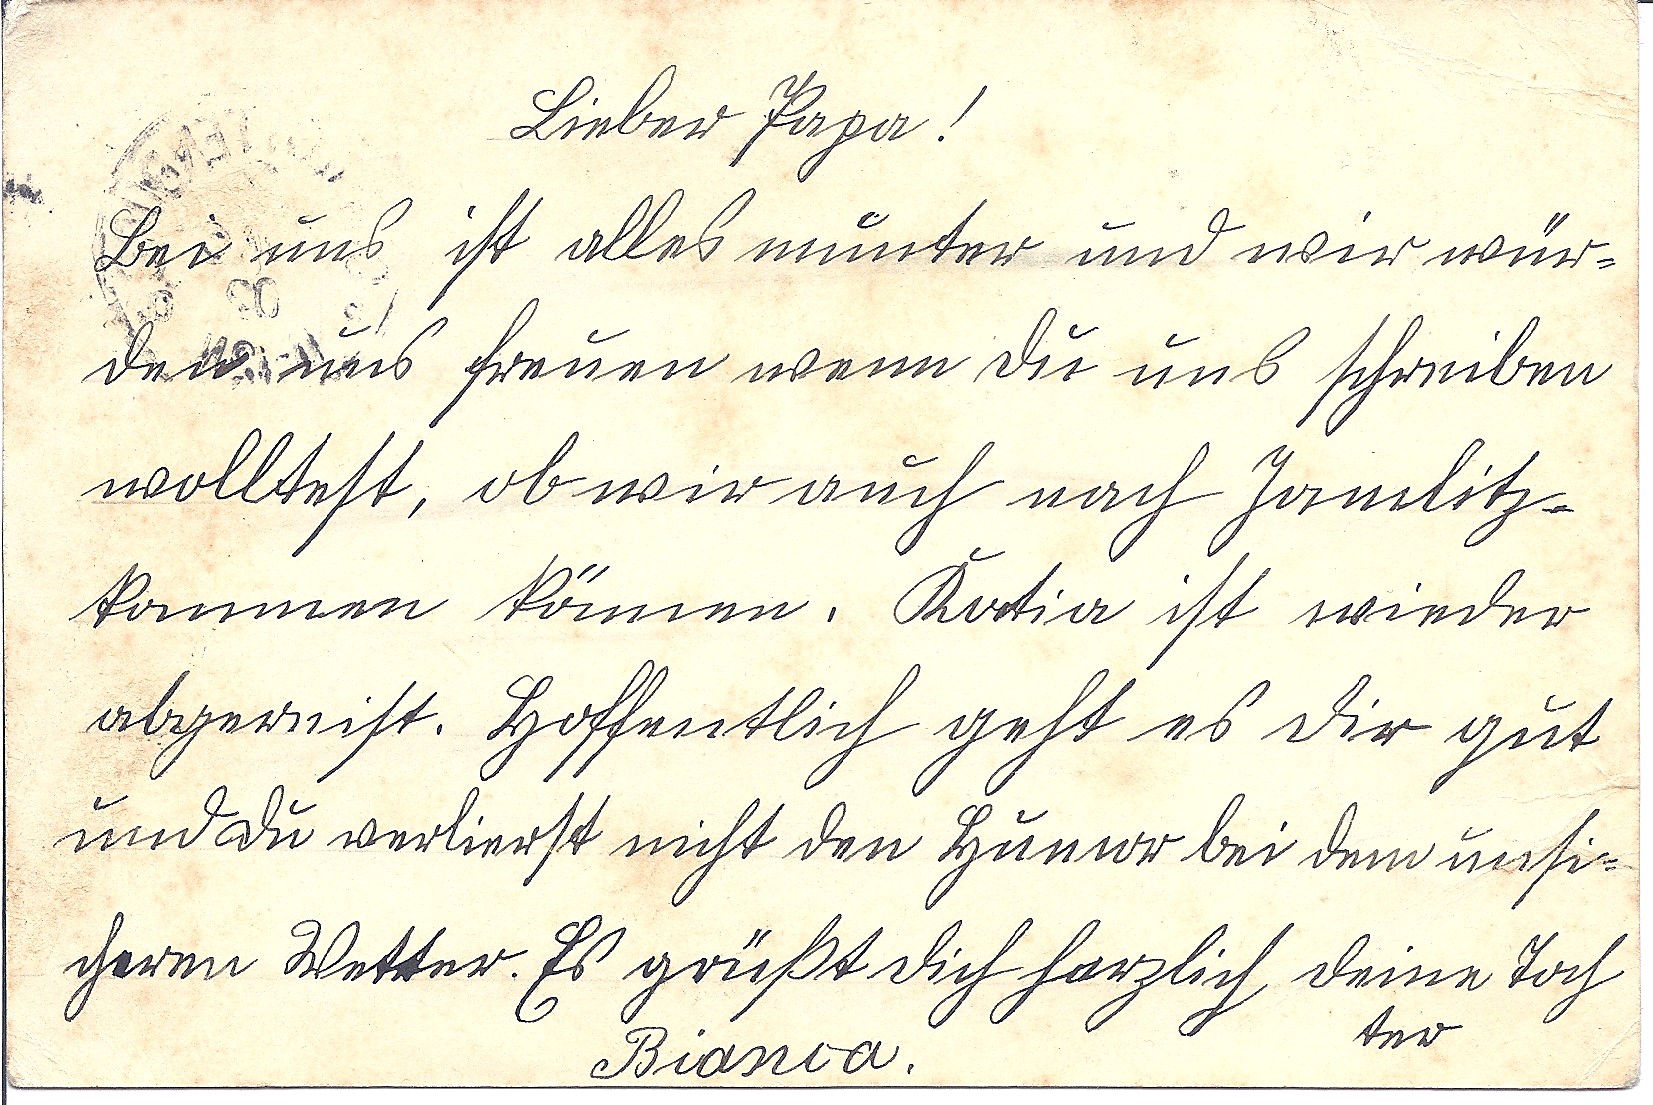 Lieber Papa!
Bei uns ist alles munter und wir wür=
den uns freuen wenn Du uns schreiben
wolltest, ob wir auch nach Jamlitz=
kommen können. Katia ist wieder
abgereist. Hoffentlich geht es Dir gut
und Du verlierst nicht den Humor bei dem unsi=
cheren Wetter. Es grüßt dich herzlich, deine Toch
ter
Bianca.